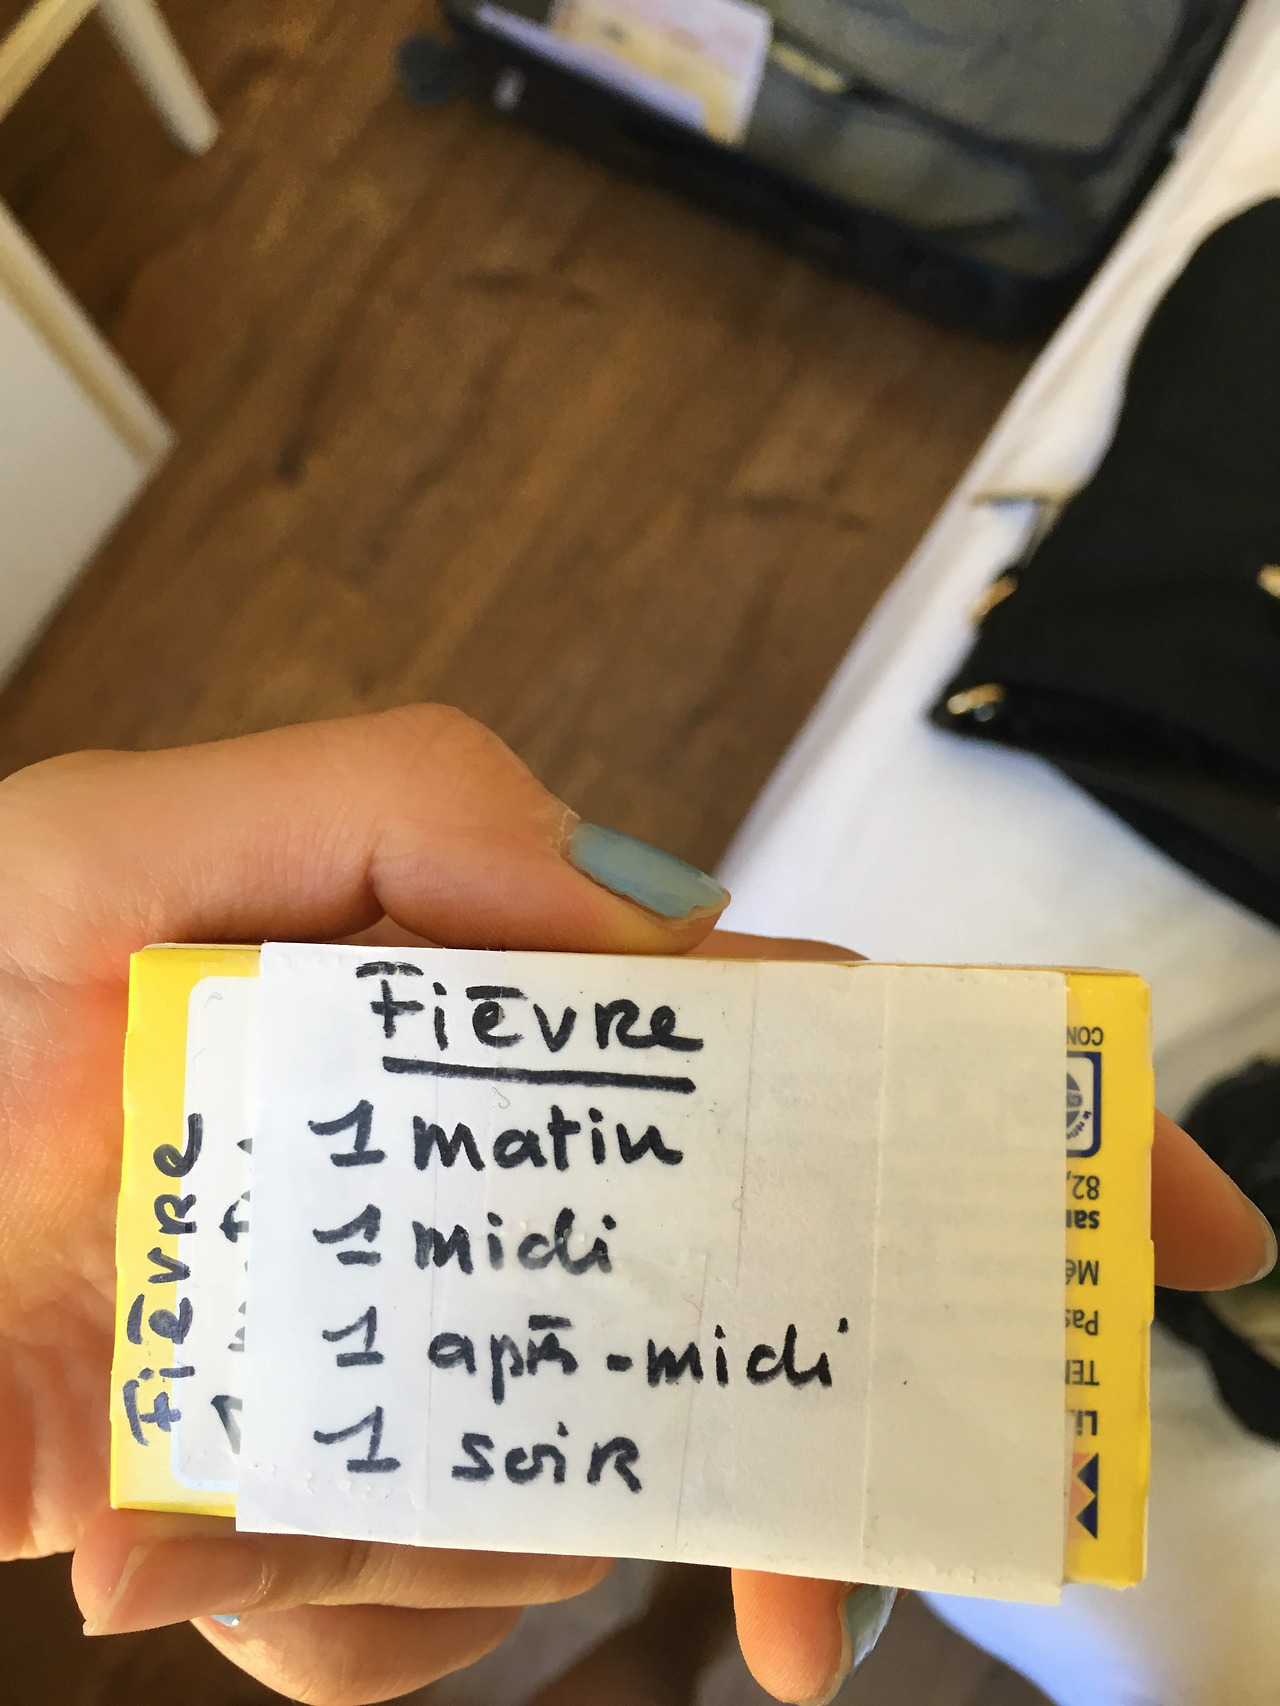 Fièvre
1 matin
1 midi
1 après-midi
1 soir
FièVRe
CON
82,
san
Mé
Pas
TEN
Li